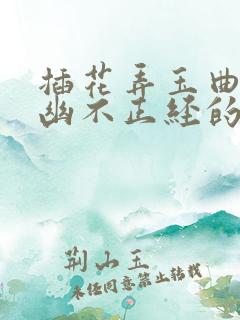 插花弄玉曲
幽不正经的
荆山玉
未经同意禁止转载